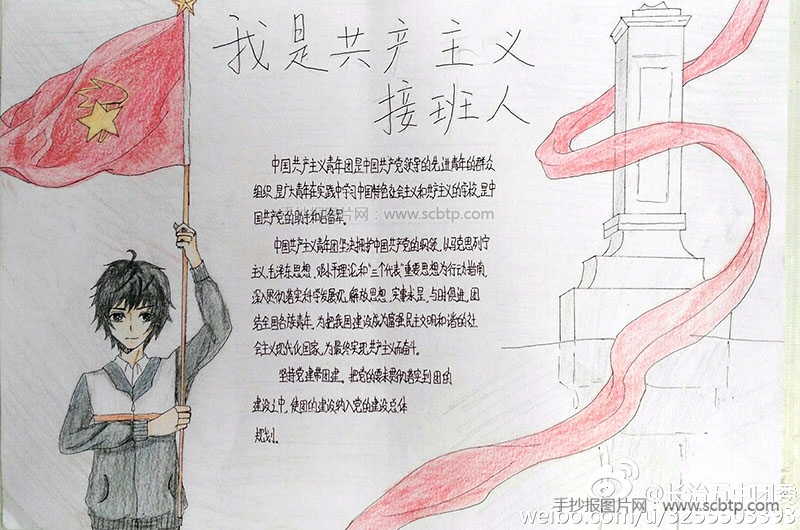 我是共产主义
接班人
中国共产主义青年团是中国共产党领导的先进青年的群众
组织,是广大青年在实践中学习中国特色社会主义和共产主义的学校,是中
国共产党的助手和后备军。
手抄报图片网:www.scbtp.com
中国共产主义青年团坚决拥护中国共产党的纲领,以马克思列宁
主义、毛泽东思想、邓小平理论和“三个代表”重要思想为行动指南,
深入贯彻落实科学发展观,解放思想,实事求是,与时俱进,团
结全国各族青年,为把我国建设成为富强民主文明和谐的社
会主义现代化国家,为最终实现共产主义而奋斗。
坚持党建带团建,把党的要求贯彻落实到团的
建设之中,使团的建设纳入党的建设总体
规划。
@长治五中团委
手抄报图片网:www.scbtp.com
weibo.com/u/3255503393